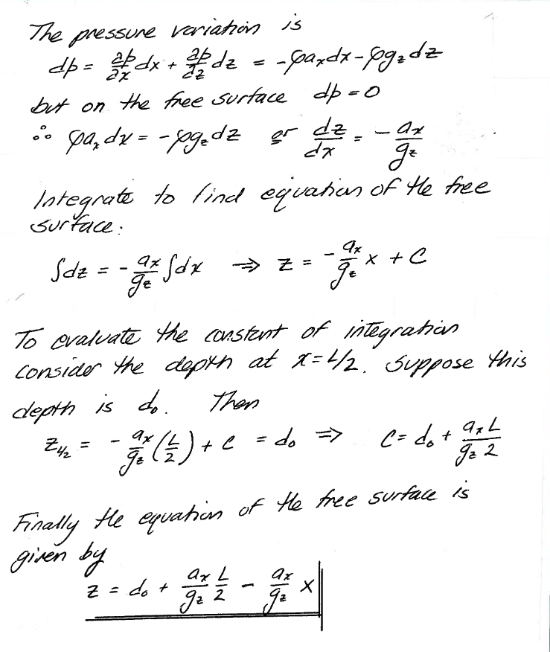 The pressure variation is
dp = ∂p/∂x dx + ∂p/∂z dz = -ρaₓdx - ρg_z dz
but on the free surface dp = 0
∴ ρaₓdx = -ρg_z dz or dz/dx = - aₓ/g_z
Integrate to find equation of the free
surface:
∫dz = - aₓ/g_z ∫dx ⇒ z = - aₓ/g_z x + C
To evaluate the constant of integration
consider the depth at x = L/2. Suppose this
depth is d₀. Then
z_L/2 = - aₓ/g_z (L/2) + C = d₀ ⇒ C = d₀ + aₓL/g_z 2
Finally the equation of the free surface is
given by
z = d₀ + aₓ/g_z L/2 - aₓ/g_z x